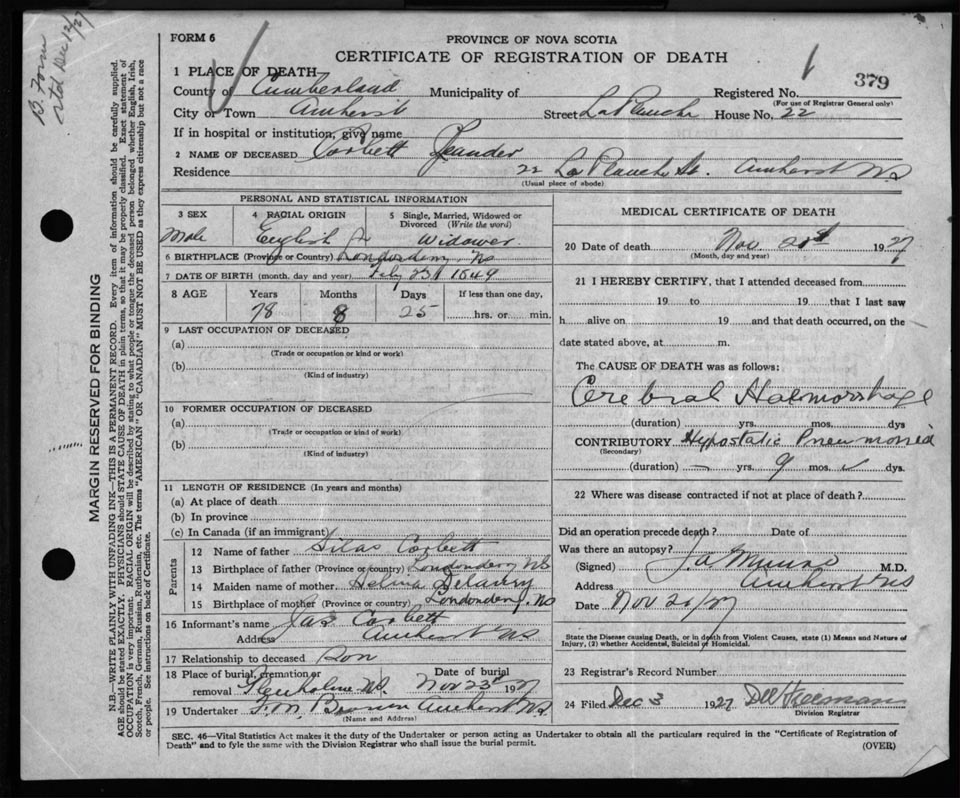 B. Form
std Dec 12/27
FORM 6
PROVINCE OF NOVA SCOTIA
CERTIFICATE OF REGISTRATION OF DEATH
379
1 PLACE OF DEATH
County of Cumberland Municipality of Registered No.
(For use of Registrar General only)
City or Town Amherst Street LaPlanche House No. 22
If in hospital or institution, give name
2 NAME OF DECEASED Corbett Leander
Residence 22 La Planche St. Amherst NS
(Usual place of abode)
PERSONAL AND STATISTICAL INFORMATION
3 SEX 4 RACIAL ORIGIN 5 Single, Married, Widowed or Divorced (Write the word)
Male English Widower
6 BIRTHPLACE (Province or Country) Londonderry, NS
7 DATE OF BIRTH (month, day and year) Feby 23 1849
8 AGE Years Months Days If less than one day,
78 8 25 hrs. or min.
9 LAST OCCUPATION OF DECEASED
(a)
(Trade or occupation or kind or work)
(b)
(Kind of industry)
10 FORMER OCCUPATION OF DECEASED
(a)
(Trade or occupation or kind of work)
(b)
(Kind of industry)
11 LENGTH OF RESIDENCE (In years and months)
(a) At place of death
(b) In province
(c) In Canada (if an immigrant)
Parents
12 Name of father Silas Corbett
13 Birthplace of father (Province or country) Londonderry NS
14 Maiden name of mother
15 Birthplace of mother (Province or country) Londonderry, NS
16 Informant's name Jas Corbett
Address Amherst NS
17 Relationship to deceased Son
18 Place of burial, cremation or removal Glenholme NS. Date of burial Nov 23rd 1927
19 Undertaker F. M. Brown Amherst NS
(Name and Address)
MEDICAL CERTIFICATE OF DEATH
20 Date of death Nov. 21st 1927
(Month, day and year)
21 I HEREBY CERTIFY, that I attended deceased from
19 to 19 , that I last saw
h alive on 19 and that death occurred, on the
date stated above, at m.
The CAUSE OF DEATH was as follows:
Cerebral Haemorrhage
(duration) yrs. mos. dys
CONTRIBUTORY Hypostatic Pneumonia
(Secondary)
(duration) — yrs. 9 mos. dys.
22 Where was disease contracted if not at place of death?
Did an operation precede death? Date of
Was there an autopsy?
(Signed) J. A. Munro M.D.
Address Amherst NS
Date Nov 21/27
State the Disease causing Death, or in death from Violent Causes, state (1) Means and Nature of
Injury, (2) whether Accidental, Suicidal or Homicidal.
23 Registrar's Record Number
24 Filed Dec 3 1927 Freeman
Division Registrar
SEC. 46—Vital Statistics Act makes it the duty of the Undertaker or person acting as Undertaker to obtain all the particulars required in the "Certificate of Registration of
Death" and to fyle the same with the Division Registrar who shall issue the burial permit.
(OVER)
MARGIN RESERVED FOR BINDING
N.B.—WRITE PLAINLY WITH UNFADING INK—THIS IS A PERMANENT RECORD. Every item of information should be carefully supplied.
AGE should be stated EXACTLY. PHYSICIANS should STATE CAUSE OF DEATH in plain terms, so that it may be properly classified. Exact statement of
OCCUPATION is very important. RACIAL ORIGIN will be described by stating to what people or tongue the deceased person belonged whether English, Irish,
Scotch, French, German, Russian, Ruthenian, etc. The terms "AMERICAN" OR "CANADIAN" MUST NOT BE USED as they express citizenship but not a race
or people. See instructions on back of Certificate.